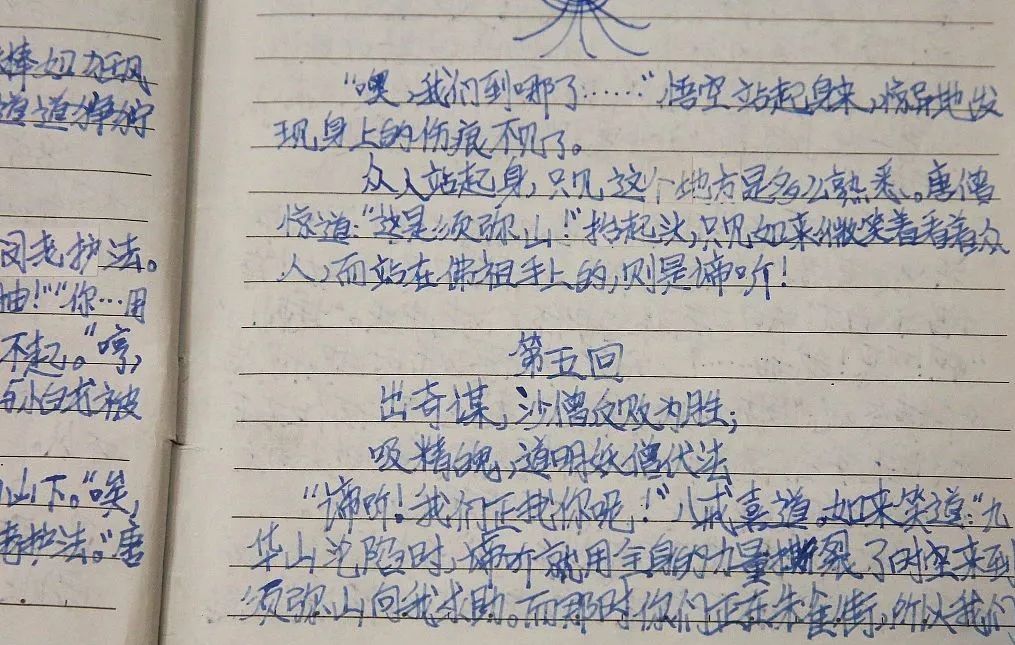 道道狰狞
闵尧护法。
抽！”“你…用
不起。”“哼，
与小白龙被
山下。“唉，
护法。”唐
“噢，我们到哪了……”悟空站起身来，惊异地发
现身上的伤痕不见了。
众人站起身，只见这个地方是多么熟悉。唐僧
惊道：“这是须弥山！”抬起头，只见如来微笑着看着众
人，而站在佛祖手上的，则是谛听！
第五回
出奇谋，沙僧反败为胜；
吸精魄，道明妖僧伏法
“谛听！我们正找你呢！”八戒喜道。如来笑道：“九
华山沦陷时，谛听就用全身的力量撕裂了时空来到
须弥山向我求助。而那时你们正在朱雀街，所以我们